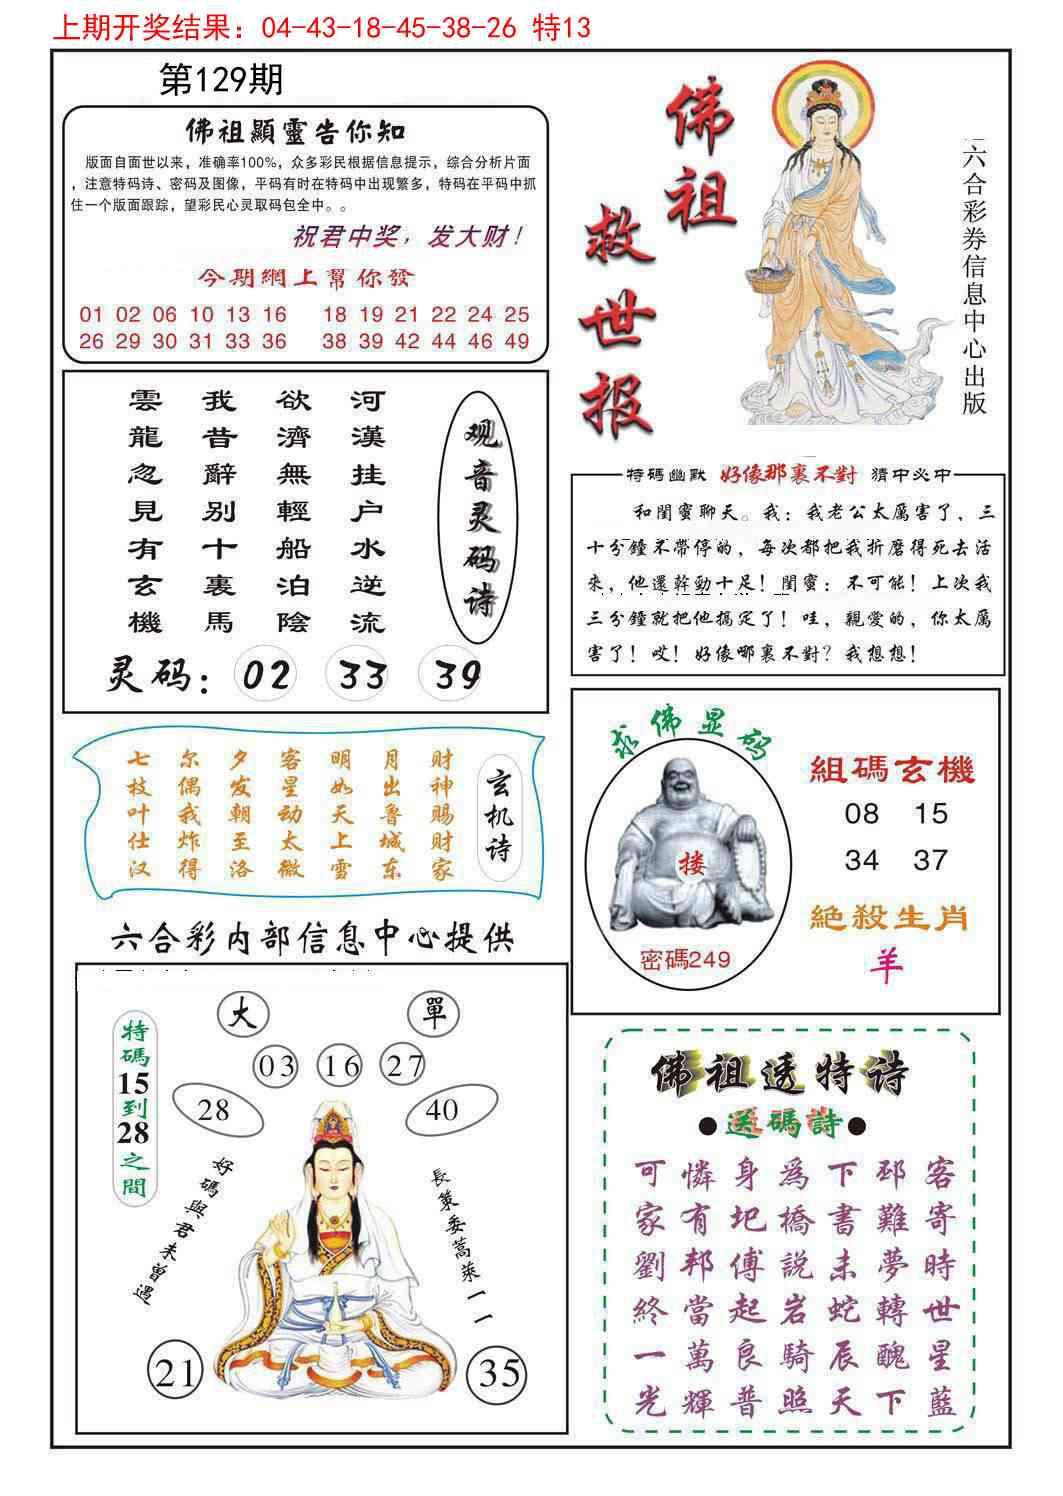 上期开奖结果：04-43-18-45-38-26 特13
第129期
佛祖顯靈告你知
版面自面世以来，准确率100%，众多彩民根据信息提示，综合分析片面
，注意特码诗、密码及图像，平码有时在特码中出现繁多，特码在平码中抓
住一个版面跟踪，望彩民心灵取码包全中。。
祝君中奖，发大财！
今期網上幫你發
01 02 06 10 13 16 18 19 21 22 24 25
26 29 30 31 33 36 38 39 42 44 46 49
佛祖
救世报
六合彩券信息中心出版
雲 我 欲 河
龍 昔 濟 漢
忽 辭 無 挂
見 别 輕 户
有 十 船 水
玄 裏 泊 逆
機 馬 陰 流
观音灵码诗
灵码：02 33 39
特碼幽默 好像那裏不對 猜中必中
和閨蜜聊天。我：我老公太厲害了，三
十分鐘不帶停的，每次都把我折磨得死去活
來，他還幹勁十足！閨蜜：不可能！上次我
三分鐘就把他搞定了！哇，親愛的，你太厲
害了！哎！好像哪裏不對？我想想！
七 尔 夕 客 明 月 财
枝 偶 发 星 如 出 神
叶 我 朝 动 天 鲁 赐
仕 炸 至 太 上 城 财
汉 得 洛 微 雪 东 家
玄机诗
求佛显码
搂
密碼249
組碼玄機
08 15
34 37
絕殺生肖
羊
六合彩内部信息中心提供
大 單
03 16 27
28 40
特碼15到28之間
好碼與君未曾遇
長策委蒿萊一一
21 35
佛祖透特诗
●送碼詩●
可 憐 身 爲 下 邳 客
家 有 圯 橋 書 難 寄
劉 邦 傅 説 未 夢 時
終 當 起 岩 蛇 轉 世
一 萬 良 騎 辰 醜 星
光 輝 普 照 天 下 藍